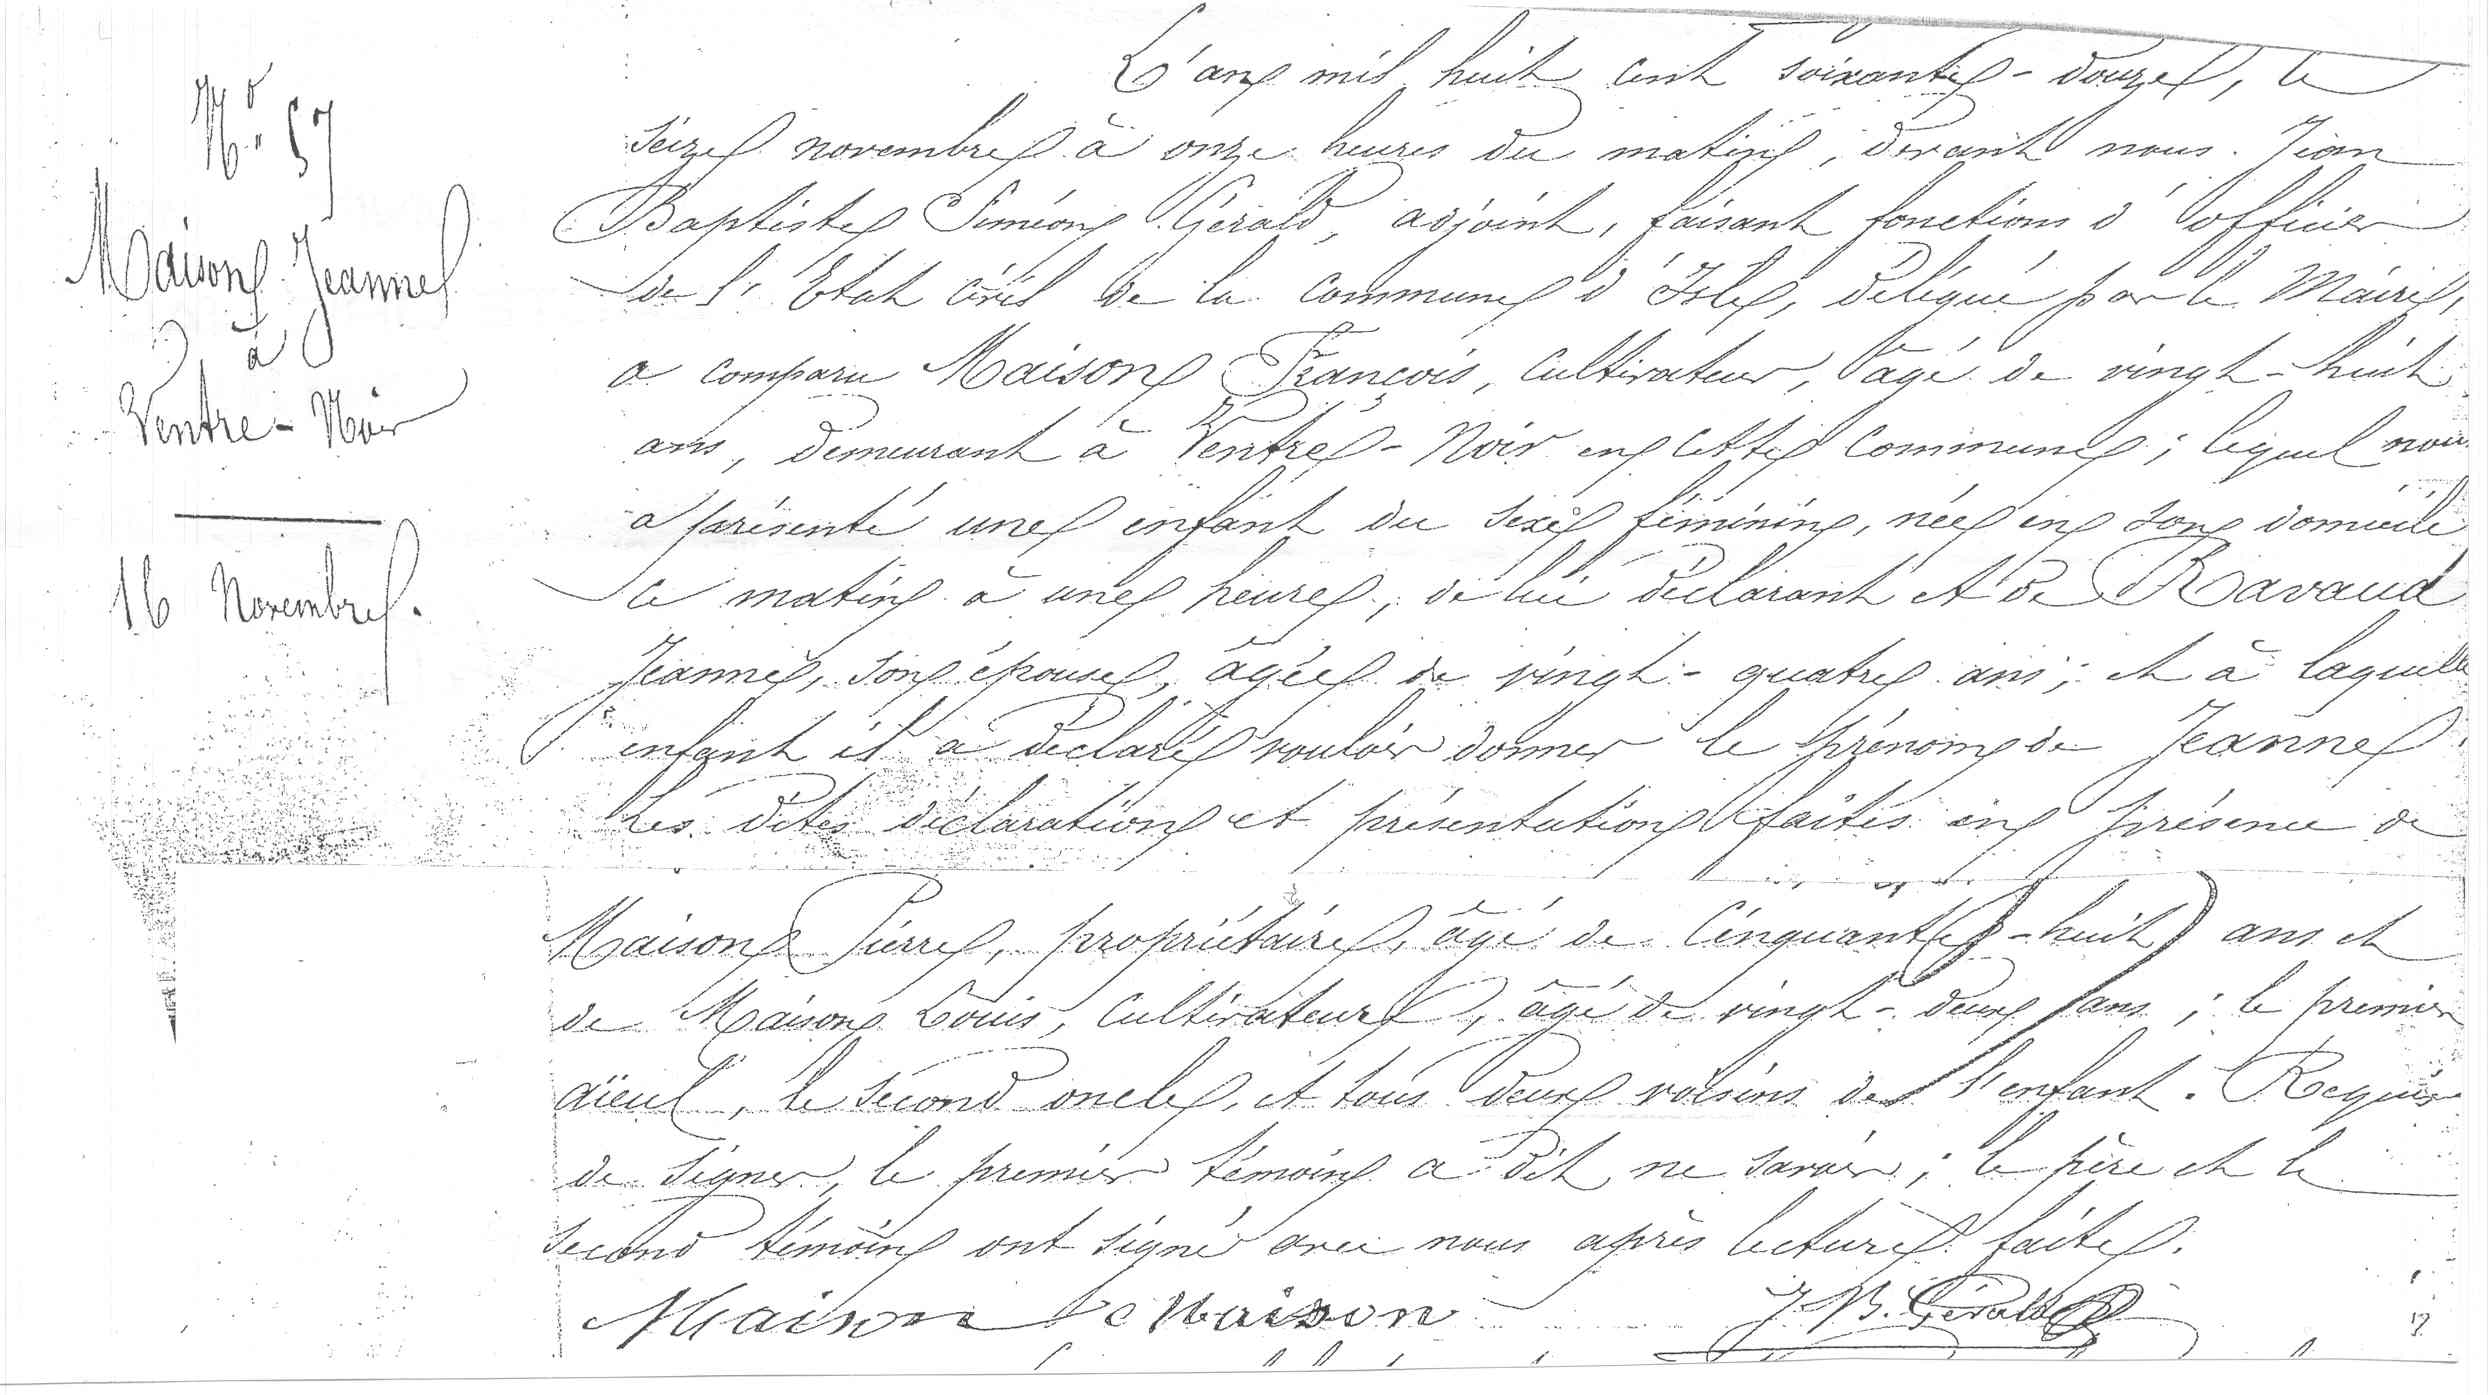 N° 57
Maison Jeanne
à
Ventre-Noir
16 Novembre.
L'an mil huit cent soixante-douze, le
seize novembre à onze heures du matin, devant nous Jean
Baptiste Siméon Gérald, adjoint, faisant fonctions d'officier
de l'Etat civil de la commune d'Isle, délégué par le Maire,
a comparu Maison François, cultivateur, âgé de vingt-huit
ans, demeurant à Ventre-Noir en cette commune; lequel nous
a présenté une enfant du sexe féminin, née en son domicile
ce matin à une heure, de lui déclarant et de Ravaud
Jeanne, son épouse, âgée de vingt-quatre ans; et à laquelle
enfant il a déclaré vouloir donner le prénom de Jeanne.
Les dites déclaration et présentation faites en présence de
Maison Pierre, propriétaire, âgé de cinquante-huit ans et
de Maison Louis, cultivateur, âgé de vingt-deux ans; le premier
aïeul, le second oncle, et tous deux voisins de l'enfant. Requis
de signer, le premier témoin a dit ne savoir; le père et le
second témoin ont signé avec nous après lecture faite.
Maison Maison J. B. Gérald